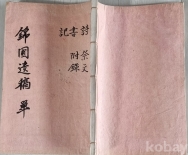 錦園遺稿 單
詩 祭文
書 附錄
記
kobay